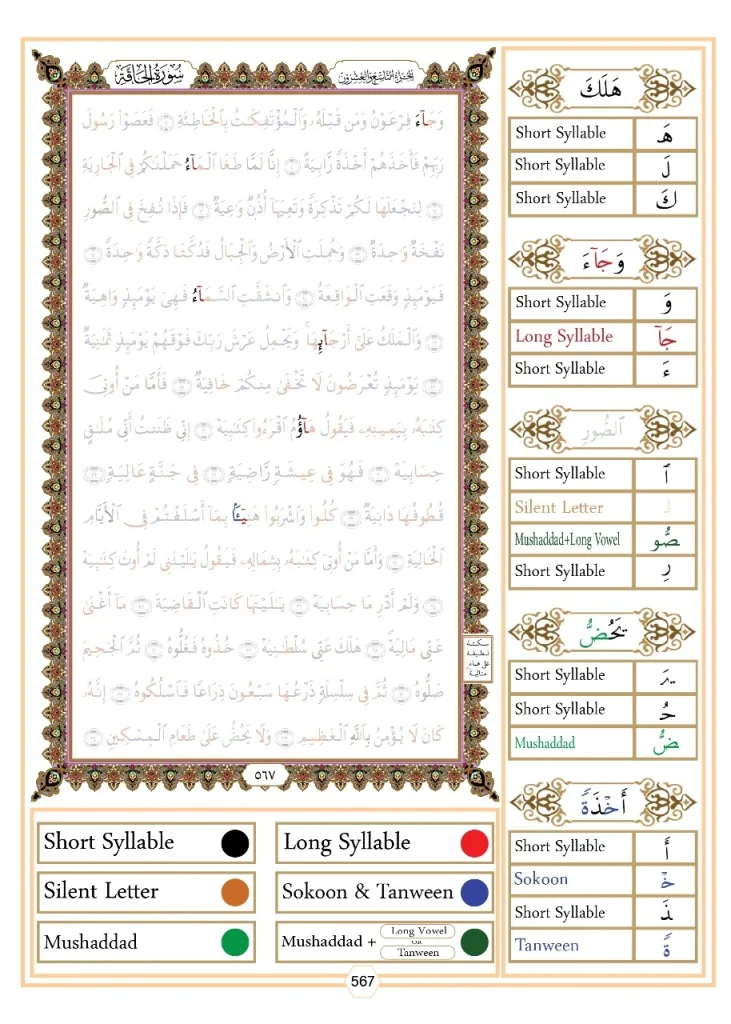 سُورَةُ الحَاقَّة
الجزء التاسع والعشرون
وَجَآءَ فِرْعَوْنُ وَمَن قَبْلَهُۥ وَٱلْمُؤْتَفِكَـٰتُ بِٱلْخَاطِئَةِ ٩ فَعَصَوْا۟ رَسُولَ
رَبِّهِمْ فَأَخَذَهُمْ أَخْذَةً رَّابِيَةً ١٠ إِنَّا لَمَّا طَغَا ٱلْمَآءُ حَمَلْنَـٰكُمْ فِى ٱلْجَارِيَةِ
١١ لِنَجْعَلَهَا لَكُمْ تَذْكِرَةً وَتَعِيَهَآ أُذُنٌ وَٰعِيَةٌ ١٢ فَإِذَا نُفِخَ فِى ٱلصُّورِ
نَفْخَةٌ وَٰحِدَةٌ ١٣ وَحُمِلَتِ ٱلْأَرْضُ وَٱلْجِبَالُ فَدُكَّتَا دَكَّةً وَٰحِدَةً ١٤
فَيَوْمَئِذٍ وَقَعَتِ ٱلْوَاقِعَةُ ١٥ وَٱنشَقَّتِ ٱلسَّمَآءُ فَهِىَ يَوْمَئِذٍ وَاهِيَةٌ
١٦ وَٱلْمَلَكُ عَلَىٰٓ أَرْجَآئِهَا ۚ وَيَحْمِلُ عَرْشَ رَبِّكَ فَوْقَهُمْ يَوْمَئِذٍ ثَمَـٰنِيَةٌ
١٧ يَوْمَئِذٍ تُعْرَضُونَ لَا تَخْفَىٰ مِنكُمْ خَافِيَةٌ ١٨ فَأَمَّا مَنْ أُوتِىَ
كِتَـٰبَهُۥ بِيَمِينِهِۦ فَيَقُولُ هَآؤُمُ ٱقْرَءُوا۟ كِتَـٰبِيَهْ ١٩ إِنِّى ظَنَنتُ أَنِّى مُلَـٰقٍ
حِسَابِيَهْ ٢٠ فَهُوَ فِى عِيشَةٍ رَّاضِيَةٍ ٢١ فِى جَنَّةٍ عَالِيَةٍ ٢٢
قُطُوفُهَا دَانِيَةٌ ٢٣ كُلُوا۟ وَٱشْرَبُوا۟ هَنِيٓـًٔۢا بِمَآ أَسْلَفْتُمْ فِى ٱلْأَيَّامِ
ٱلْخَالِيَةِ ٢٤ وَأَمَّا مَنْ أُوتِىَ كِتَـٰبَهُۥ بِشِمَالِهِۦ فَيَقُولُ يَـٰلَيْتَنِى لَمْ أُوتَ كِتَـٰبِيَهْ
٢٥ وَلَمْ أَدْرِ مَا حِسَابِيَهْ ٢٦ يَـٰلَيْتَهَا كَانَتِ ٱلْقَاضِيَةَ ٢٧ مَآ أَغْنَىٰ
عَنِّى مَالِيَهْ ۜ ٢٨ هَلَكَ عَنِّى سُلْطَـٰنِيَهْ ٢٩ خُذُوهُ فَغُلُّوهُ ٣٠ ثُمَّ ٱلْجَحِيمَ
صَلُّوهُ ٣١ ثُمَّ فِى سِلْسِلَةٍ ذَرْعُهَا سَبْعُونَ ذِرَاعًا فَٱسْلُكُوهُ ٣٢ إِنَّهُۥ
كَانَ لَا يُؤْمِنُ بِٱللَّهِ ٱلْعَظِيمِ ٣٣ وَلَا يَحُضُّ عَلَىٰ طَعَامِ ٱلْمِسْكِينِ ٣٤
سكتة
لطيفة
على هاء
ماليه
٥٦٧
Short Syllable
Long Syllable
Silent Letter
Sokoon & Tanween
Mushaddad
Mushaddad + Long Vowel
OR
Tanween
567
هَلَكَ
Short Syllable هَـ
Short Syllable لَ
Short Syllable كَ
وَجَآءَ
Short Syllable وَ
Long Syllable جَآ
Short Syllable ءَ
ٱلصُّورِ
Short Syllable ٱ
Silent Letter لـ
Mushaddad+Long Vowel صُّو
Short Syllable رِ
يَحُضُّ
Short Syllable يَـ
Short Syllable حُـ
Mushaddad ضُّ
أَخْذَةً
Short Syllable أَ
Sokoon خْـ
Short Syllable ذَ
Tanween ةً